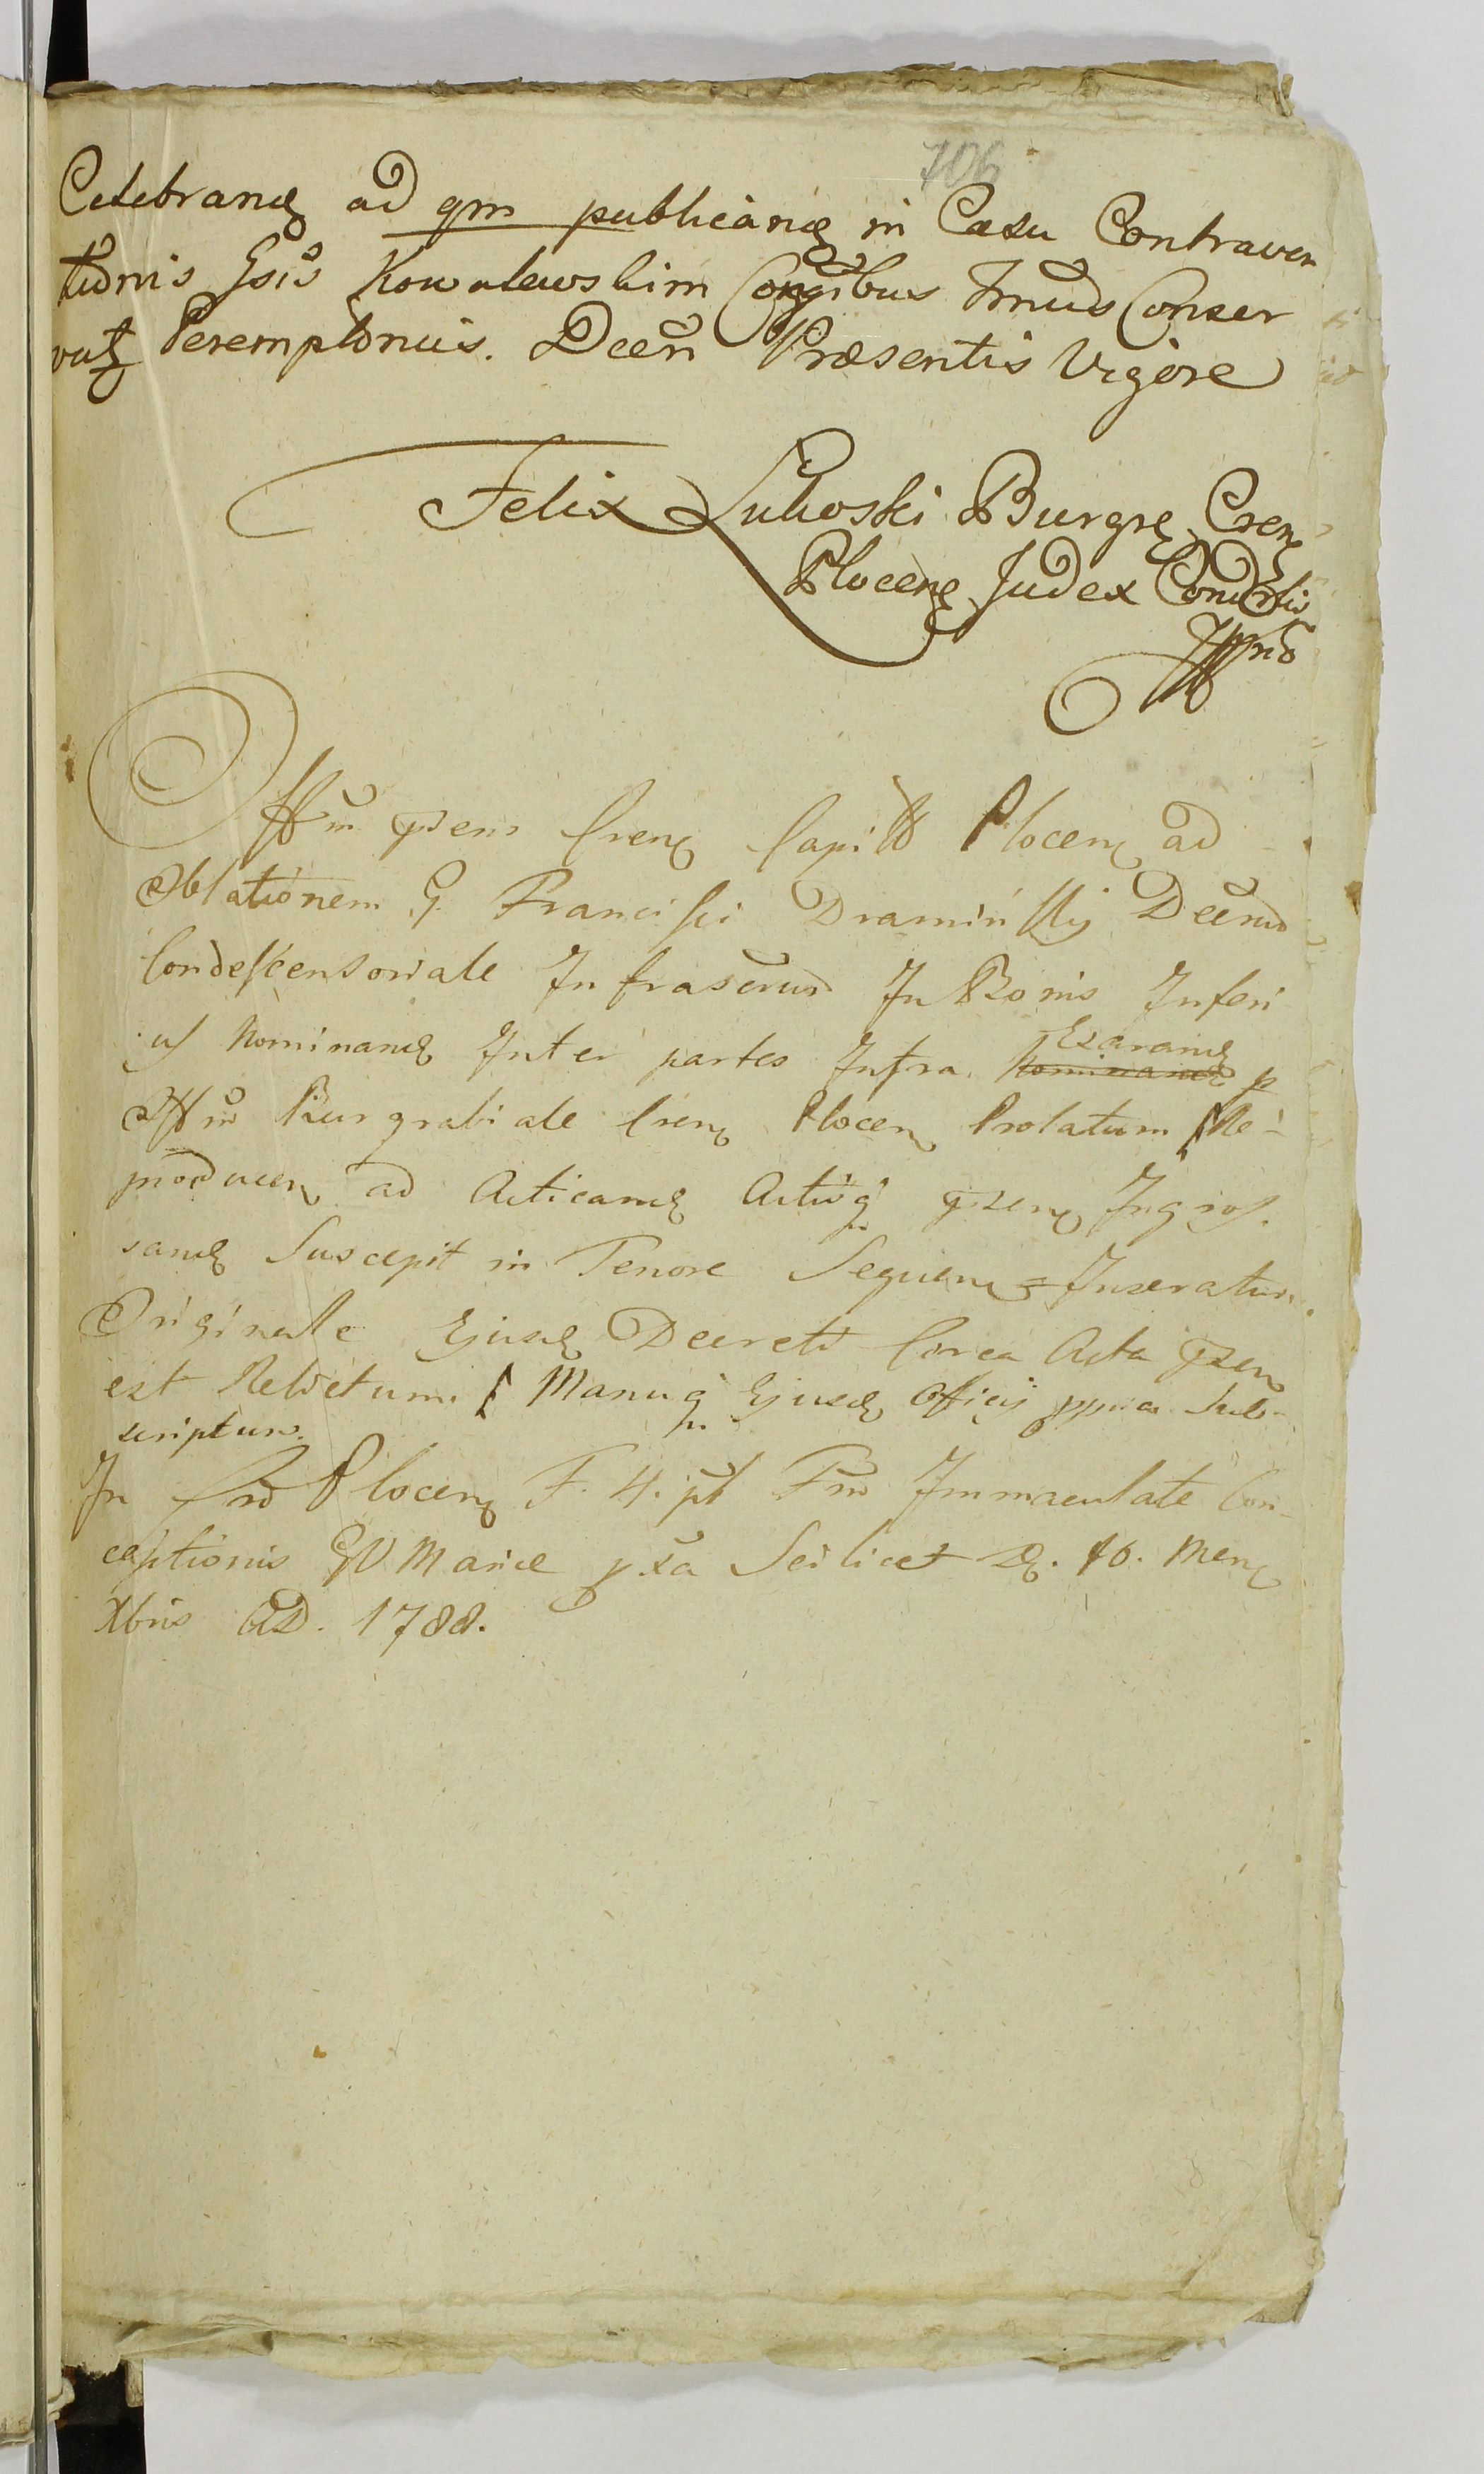 706
Celebranḍ ad qm publicanḍ in Casu Contraven
tionis Gsis Kowalewskim Congibus Tmũd Conser
vatȝ Peremptorius. Decri Præsentis Vigore
Felix Łukoski Burgrę Cren
Plocenę Judex Condrlis
Mppriã
Offm psens Crenę Capitł Plocenę ad
Oblationem G. Francisci Dramińskij Decrũ
Condescensoriale Infrascrũm In Bonis Inferi
us Nominanḍ Inter partes Infra Exaranḍ p
Offm Burgrabiale Crenę Plocenę Prolatum Re-
producenę ad Acticanḍ Actisq psenę Ingros.
sanḍ Suscepit in Tenore Sequenę = Inseratur.
Originale Ejusḍ Decreti Circa Acta psen
est Relictum. Manuq Ejusḍ Officij ppria Sub-
scriptum.
In Cro Plocenę F. 4. pt Fm Immaculatæ Con-
ceptionis BV Mariæ pxa Scilicet D. 10. Menę
Xbris AD. 1788.